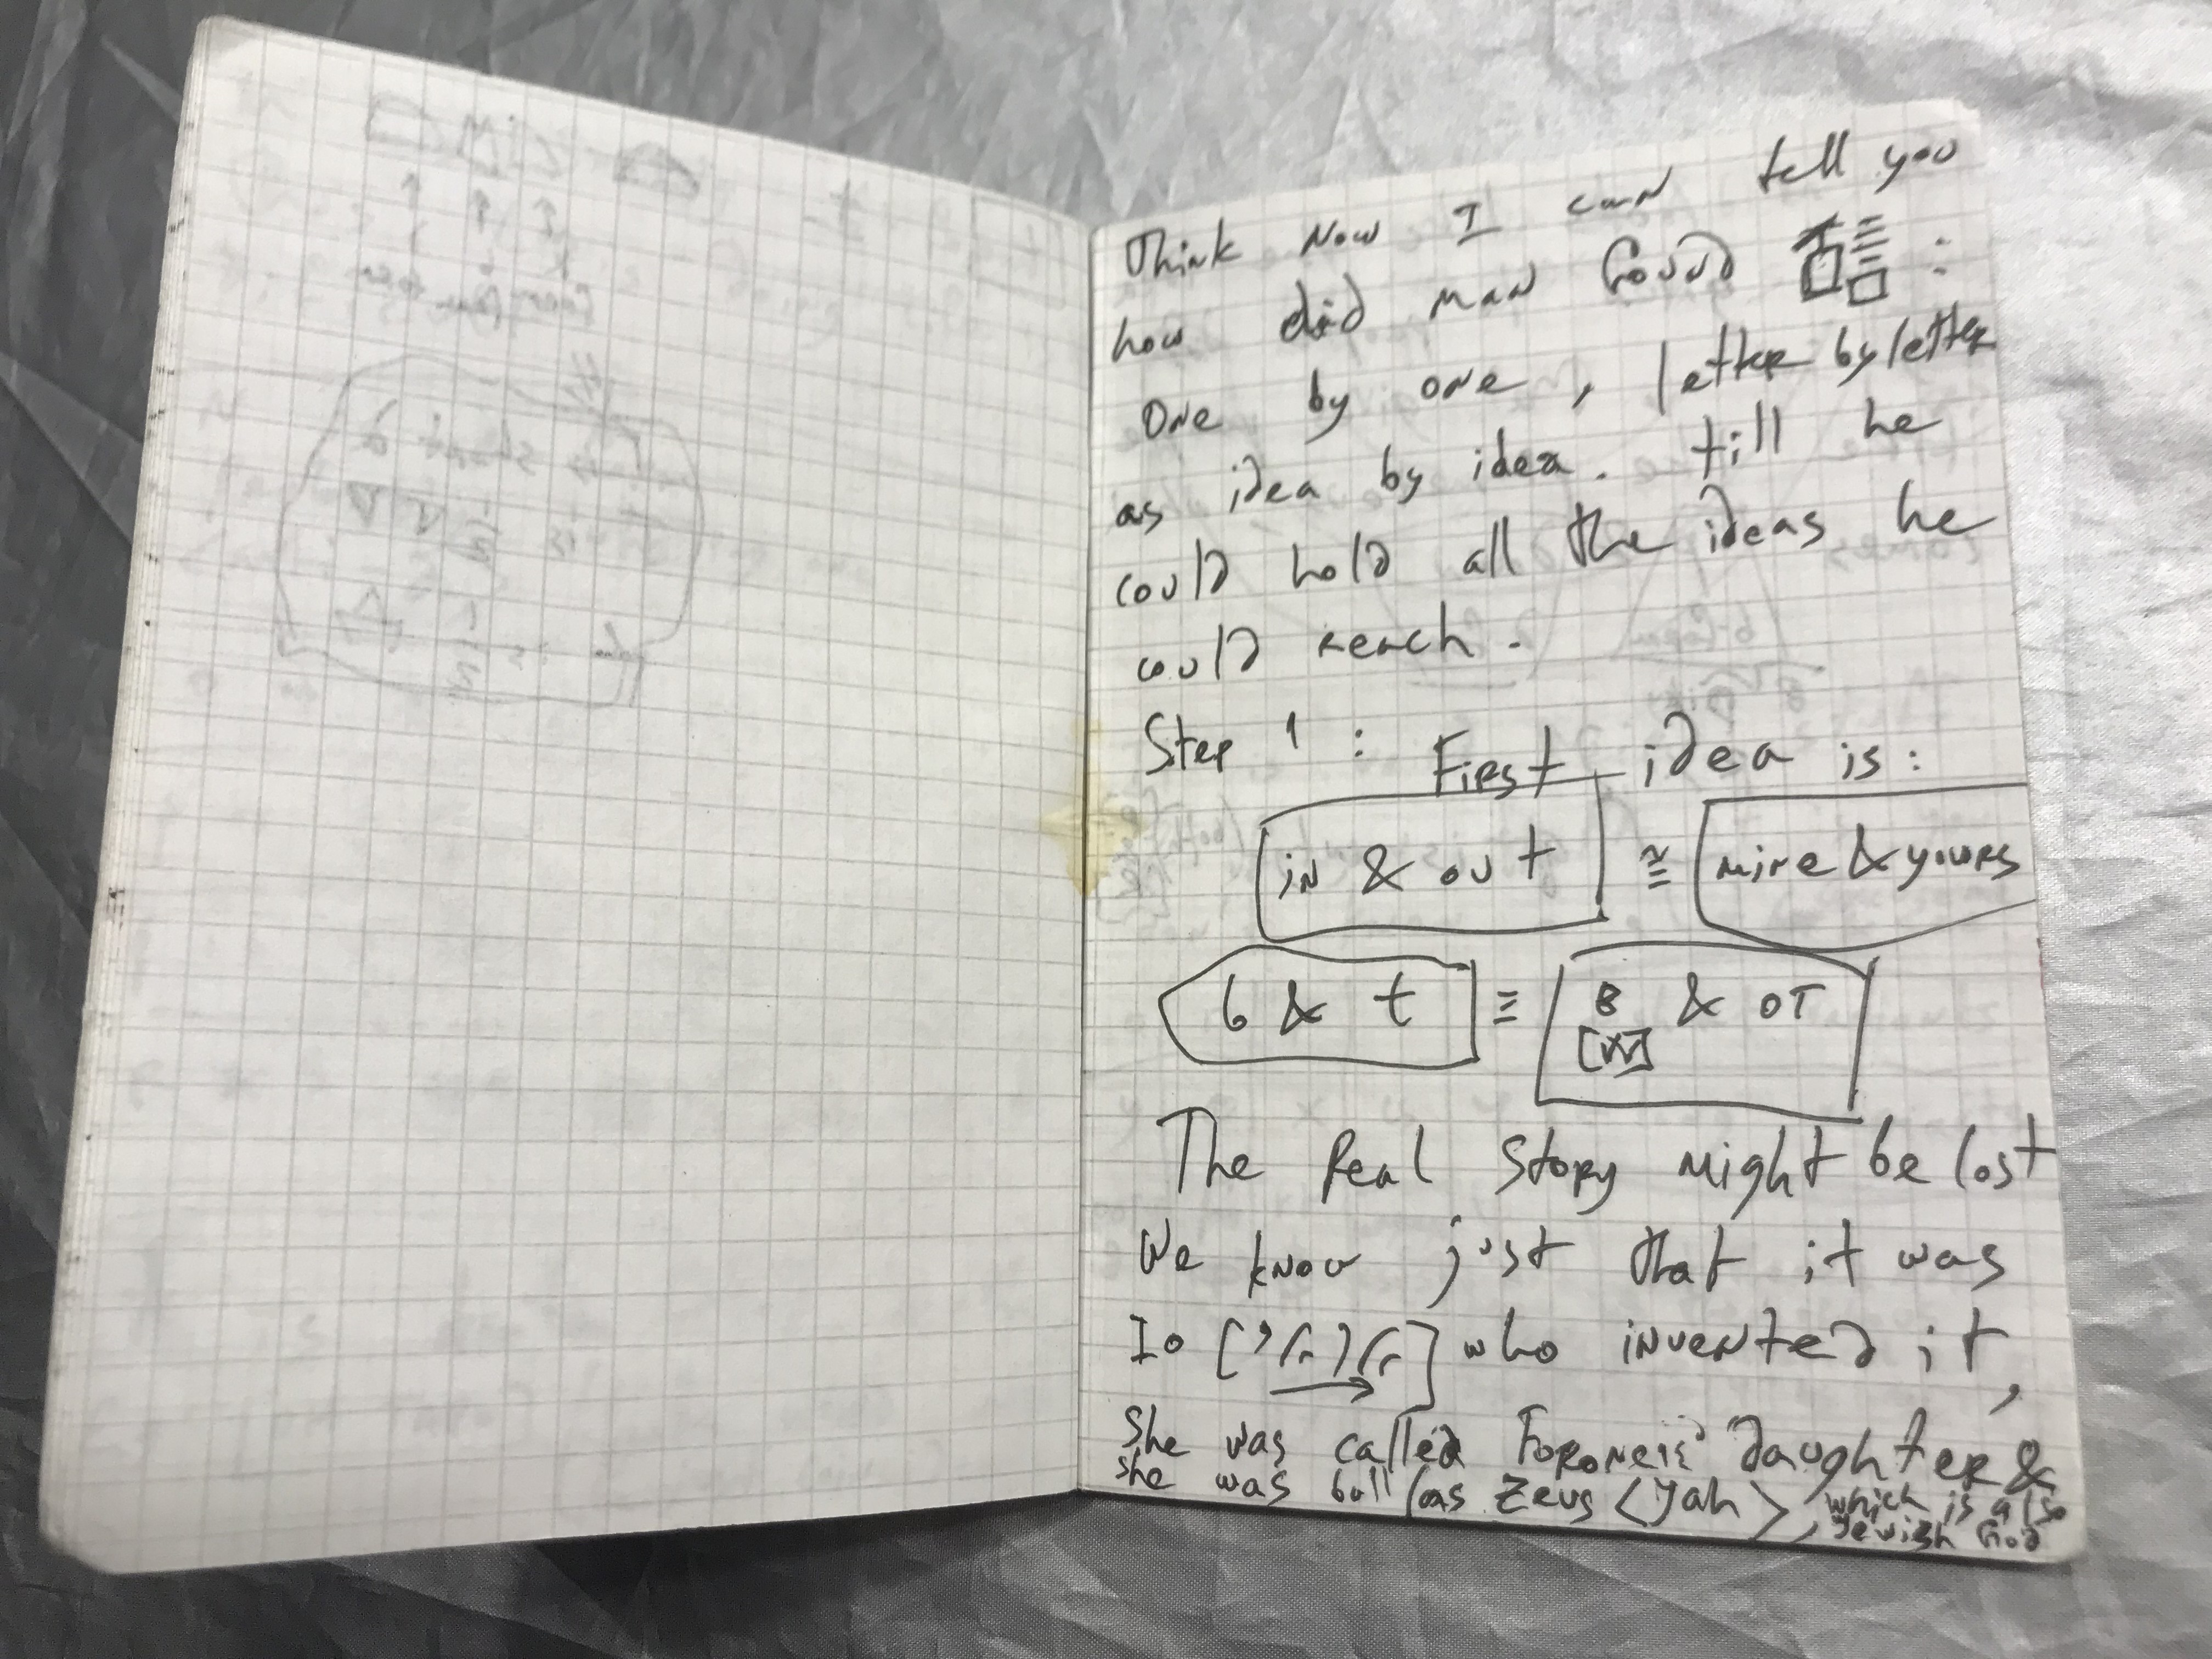 Think Now I can tell you
how did man Found :
One by one, letter by letter
as idea by idea. till he
could hold all the ideas he
could reach.
Step 1 : First idea is:
in & out ≅ mine & yours
b & t ≡ 8 & OT
[x]
The Real Story might be lost
We know just that it was
Io who invented it,
She was called Foroneis' daughter &
she was bull/as Zeus (Yah), which is also
yewish God